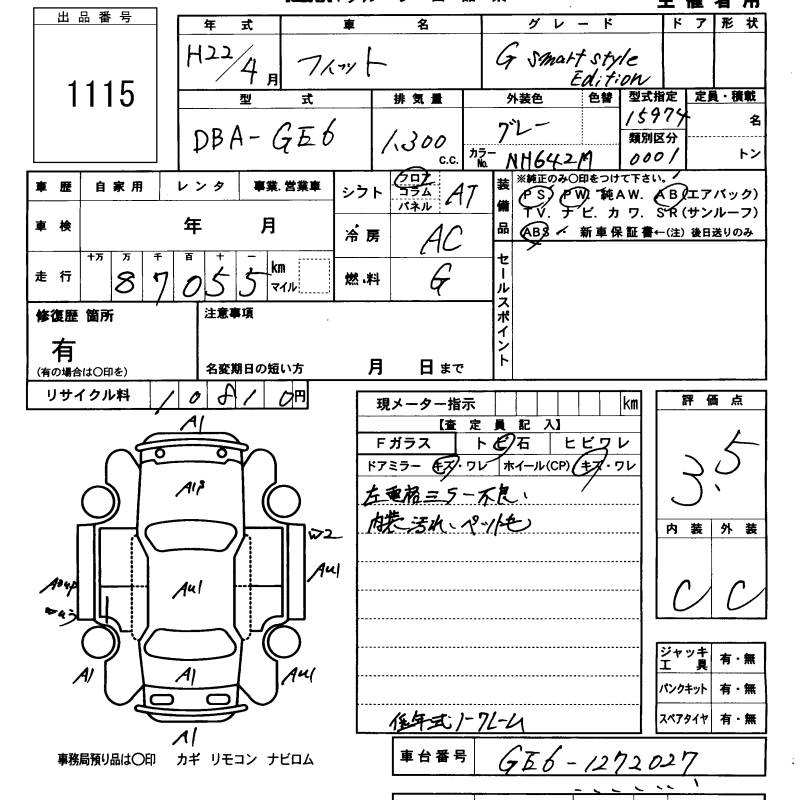 出品番号
1115
年式 車名 グレード ドア 形状
H22/4月 フィット G smart style Edition
型式 排気量 外装色 色替 型式指定 定員・積載
DBA-GE6 1,300 c.c. グレー 15974 名
カラーNo. NH642M 類別区分 0001 トン
車歴 自家用 レンタ 事業.営業車
シフト フロア コラム パネル AT
装備品 ※純正のみ〇印をつけて下さい。
PS PW 純AW. AB(エアバック)
TV. ナビ. カワ. SR(サンルーフ)
ABS 新車保証書←(注) 後日送りのみ
車検 年 月
冷房 AC
走行 十万 万 千 百 十 一
87055 km マイル
燃料 G
セールスポイント
修復歴 箇所
有
(有の場合は〇印を)
注意事項
名変期日の短い方 月 日まで
リサイクル料 10810円
現メーター指示 km
【査定員記入】
Fガラス トビ石 ヒビワレ
ドアミラー キズ・ワレ ホイール(CP) キズ・ワレ
左電格ミラー不良、
内装汚れ、ペット毛
低年式1-フレーム
評価点
3.5
内装 外装
C C
A1
A1P
W2
AU1
AU1
W43
A1
A1
AU1
A1
ジャッキ工具 有・無
パンクキット 有・無
スペアタイヤ 有・無
事務局預り品は〇印 カギ リモコン ナビロム
車台番号 GE6-1272027